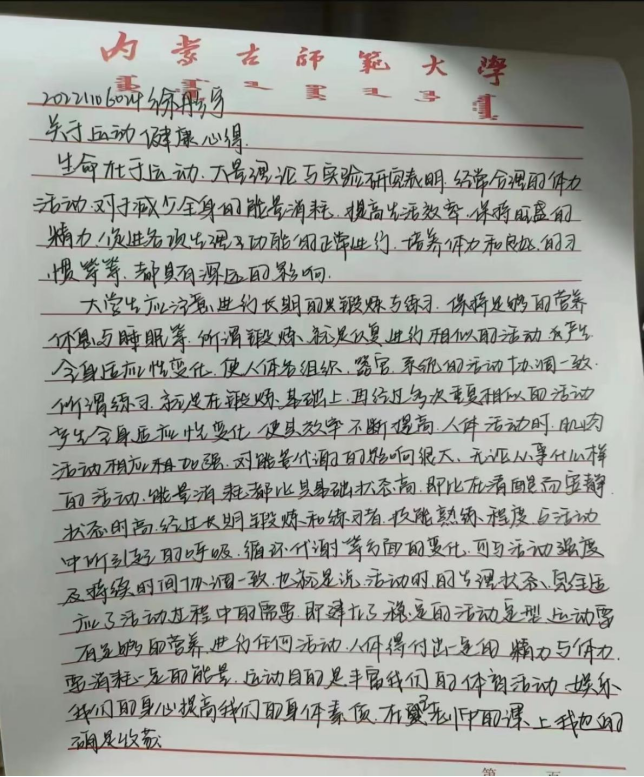 内蒙古师范大学
关于运动健康心得
生命在于运动.大量理论与实验研究表明.经常合理的体力
活动.对于减少全身的能量消耗.提高生活效率.保持旺盛的
精力.促进各项生理功能的正常进行.培养体力和良好的习
惯等等.都具有深远的影响.
大学生应注意进行长期的锻炼与练习.保持足够的营养
休息与睡眠等.所谓锻炼.就是反复进行相似的活动产生
全身适应性变化.使人体各组织.器官.系统的活动协调一致.
所谓练习.就是在锻炼基础上.再经过多次重复相似的活动
产生全身适应性变化.使其效率不断提高.人体活动时.肌肉
活动相应相加强.对能量代谢的影响很大.无论从事什么样
的活动.能量消耗都比其基础状态高.即比在清醒而安静
状态时高.经过长期锻炼和练习者.技能熟练程度与活动
中所引起的呼吸.循环.代谢等多面的变化.可与活动强度
及持续时间协调一致.也就是说.活动时的生理状态.完全适
应了活动过程中的需要.即建立了稳定的活动定型.运动需
有足够的营养.进行任何活动.人体得付出一定的精力与体力.
需消耗一定的能量.运动目的是丰富我们的体育活动.娱乐
我们的身心提高我们的身体素质.在 中的课上我也的
确是收获
第 页